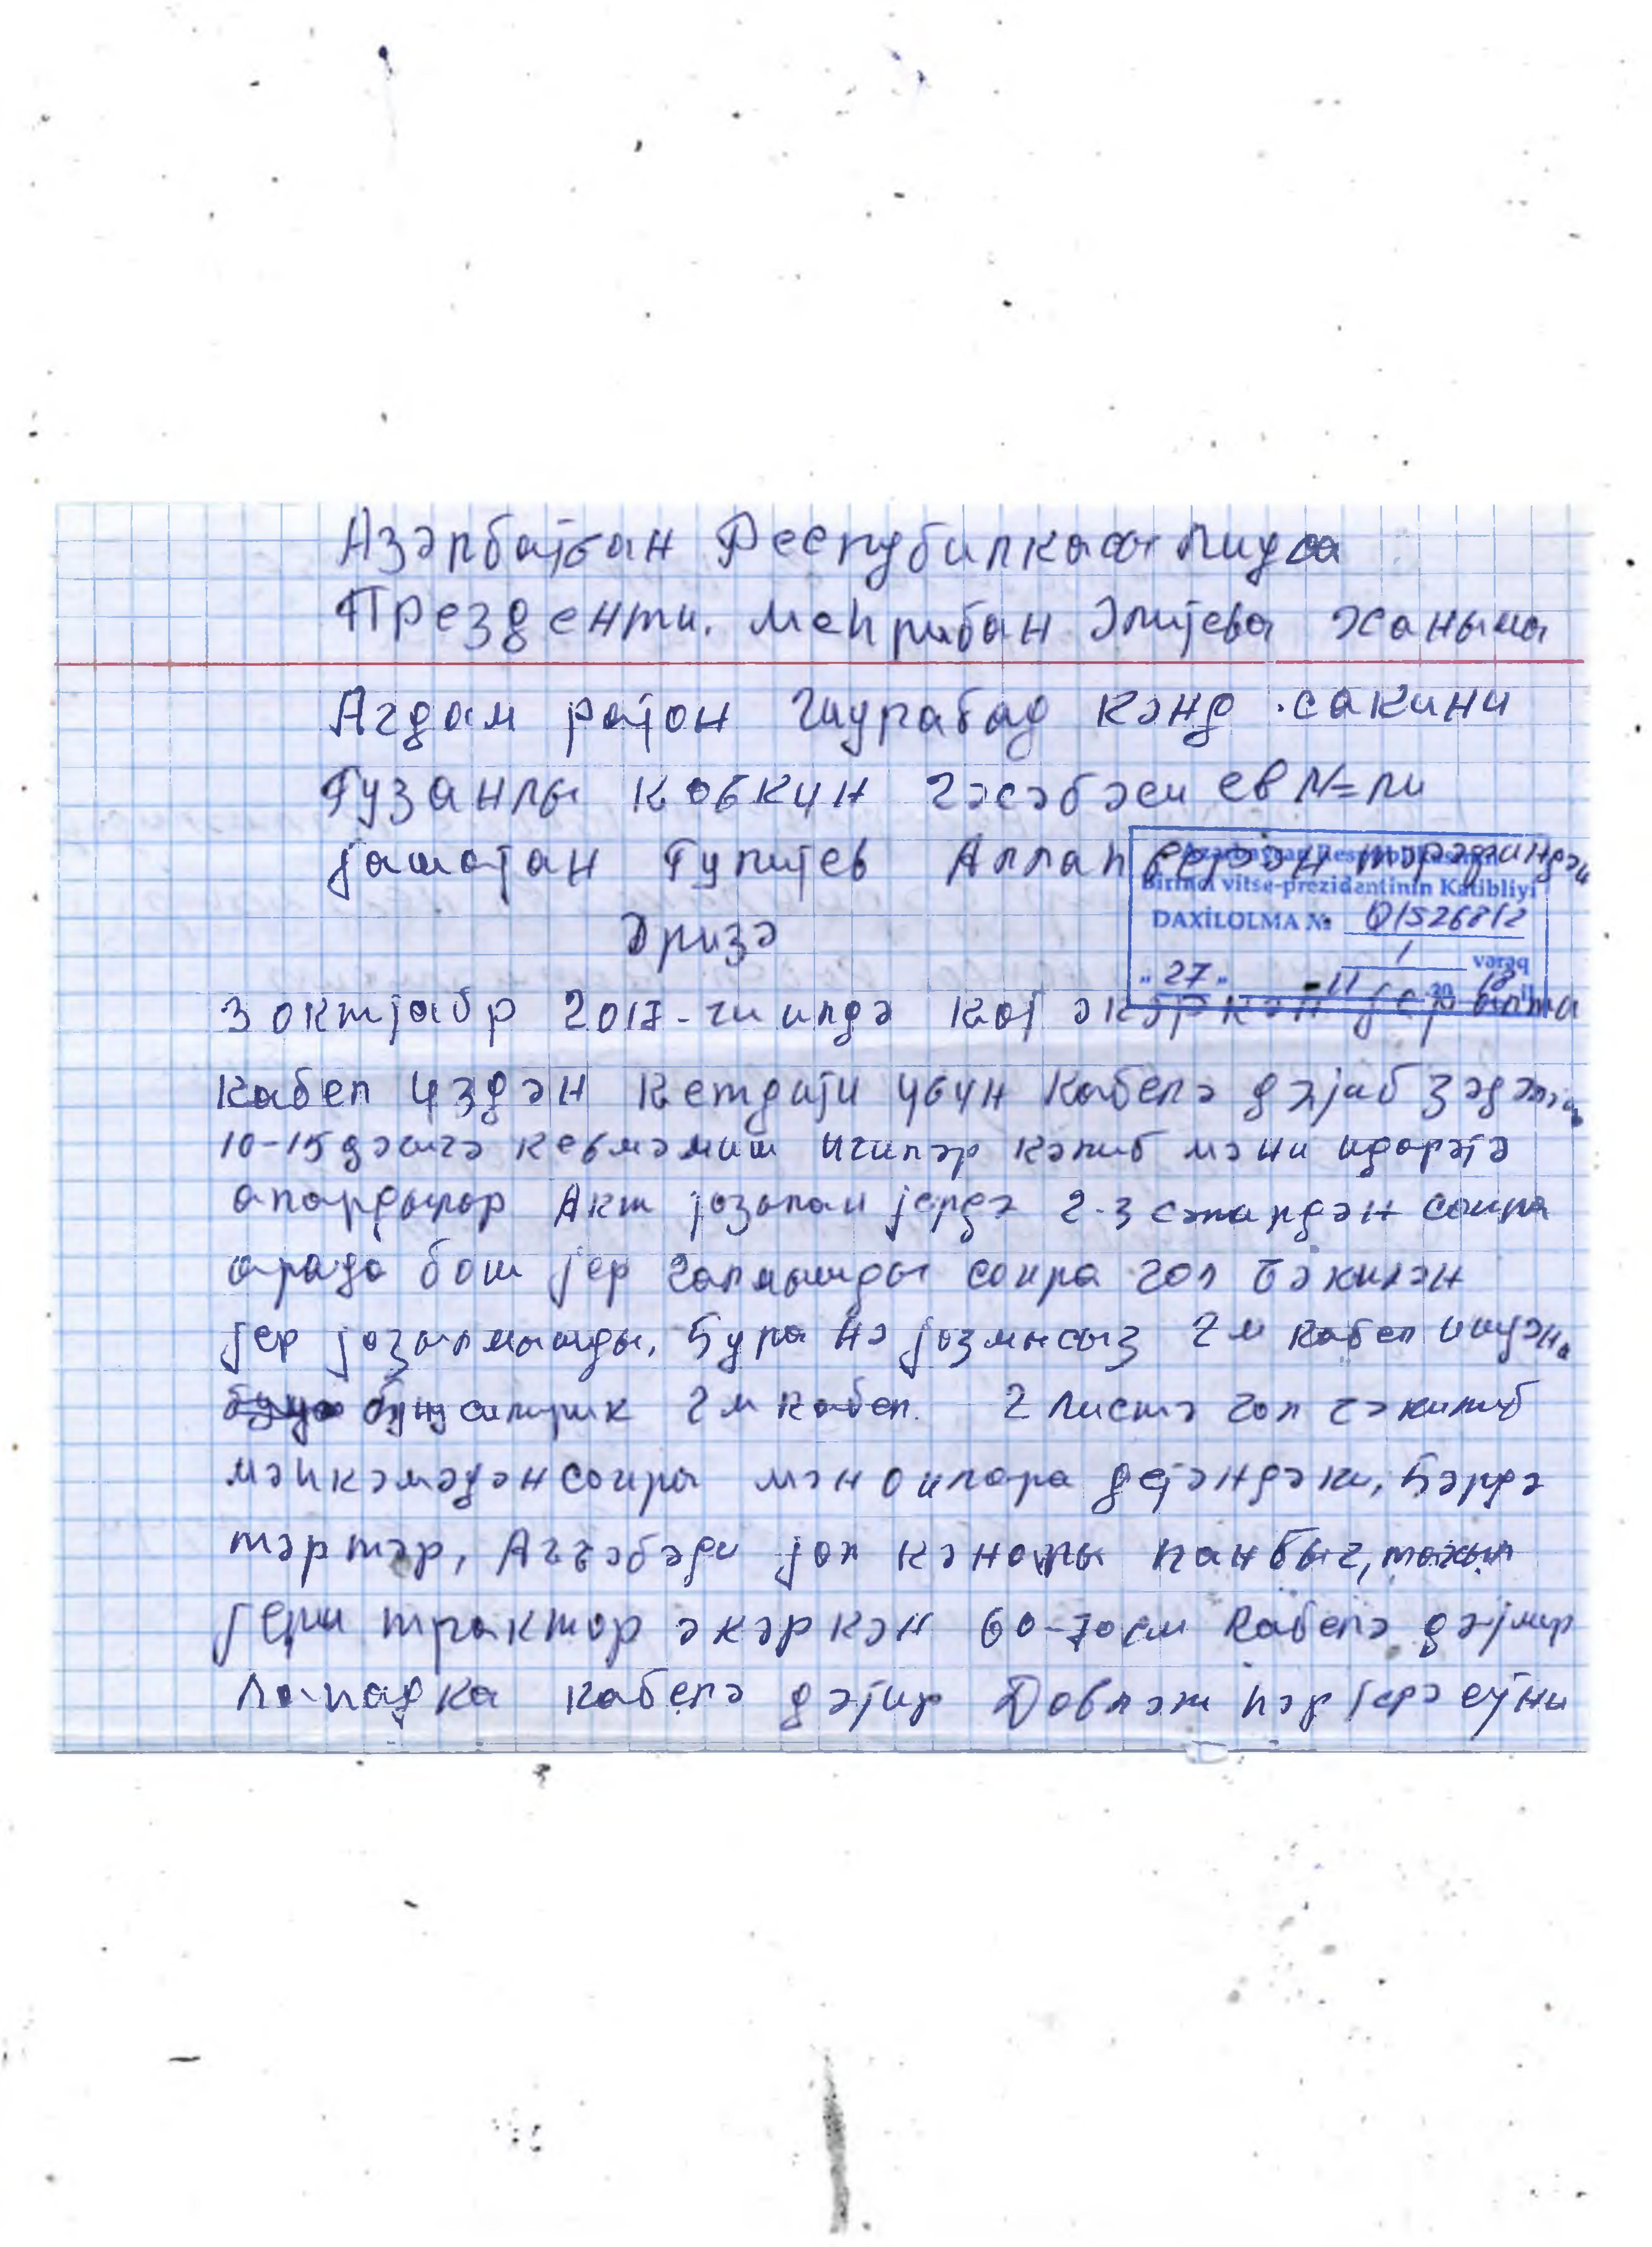 Азәрбајҹан Республикасы
Президенти. Меһрибан Әлијева ханыма
Агдам рајон кәнд сакини
Гузанлы көвкүн гәсәбәси ев №= ли
јашајан Гулијев Аллаһверән тәрәфиндән
Azərbaycan Respublikasının
Birinci vitse-prezidentinin Katibliyi
DAXİLOLMA № 01526812
1 vərəq
" 27 " 11 20 18 il
Әризә
3 октјабр 2017-чи илдә кој әкәркән јер алта
кабел үздән кетдији үчүн кабелә дәјиб
10-15 дәгигә кечмәмиш кәлиб мәни идарәјә
апардылар Акт јазылан јердә 2-3 сәтирдән сонра
арада бош јер галмышды сонра гол чәкилән
јер јазылмамышды. Бура нә јазмысыз 2 м кабел
сантрик 2 м кабел. 2 листә гол чәкилиб
мәһкәмәдән сонра мән онлара дејәндәки, Бәрдә
тәртәр, Агҹәбәди јол кәнары панбыг, тахыл
јери трактор әкәркән 60-70 см кабелә дәјмир
лападка кабелә дәјир Довләт һәр јерә ејни